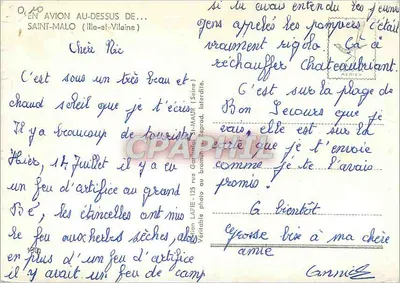 EN AVION AU-DESSUS DE...
SAINT-MALO (Ille-et-Vilaine)
C'est sous un très beau et
chaud soleil que je t'écris.
Il y a beaucoup de touristes
Hier, 14 Juillet il y a eu
un feu d'artifice au grand
Bé, les étincelles ont mis
le feu aux herbes sèches, alors
en plus d'un feu d'artifice
il y avait un feu de camp
si tu avais entendu les jeunes
gens appelés les pompiers c'était
vraiment rigolo. Ça a
réchauffer Chateaubriant.
C'est sur la plage de
Bon Secours que je
vais, elle est sur la
carte que je t'envoie
comme je te l'avais
promis.
G bientôt
Grosse bise à ma chère
amie
Annick
CAPHILE